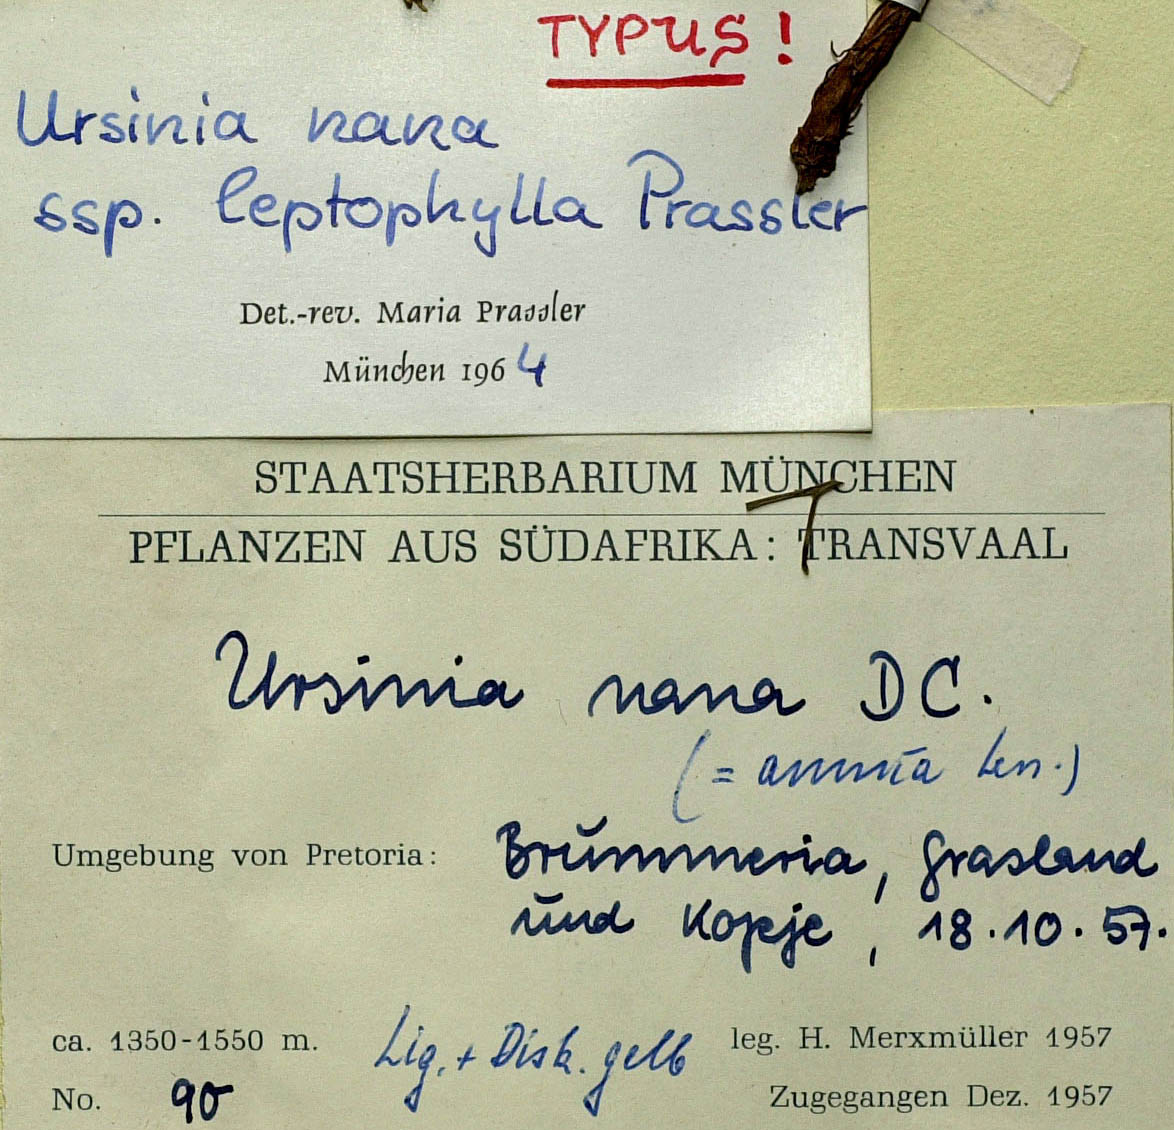 TYPUS!
Ursinia nana
ssp. leptophylla Prassler
Det.-rev. Maria Prassler
München 1964
STAATSHERBARIUM MÜNCHEN
PFLANZEN AUS SÜDAFRIKA: TRANSVAAL
Ursinia nana DC.
(= annua
Umgebung von Pretoria: Brummeria, Grasland
und Kopje, 18.10.57.
ca. 1350-1550 m. Lig. + Disk. gelb leg. H. Merxmüller 1957
No. 90 Zugegangen Dez. 1957